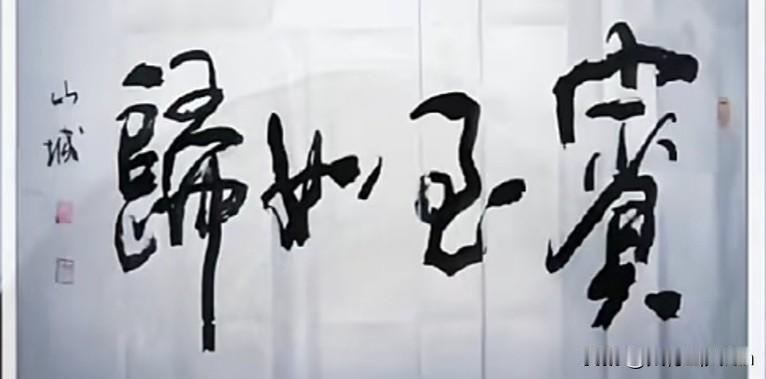 賓至如歸
山城